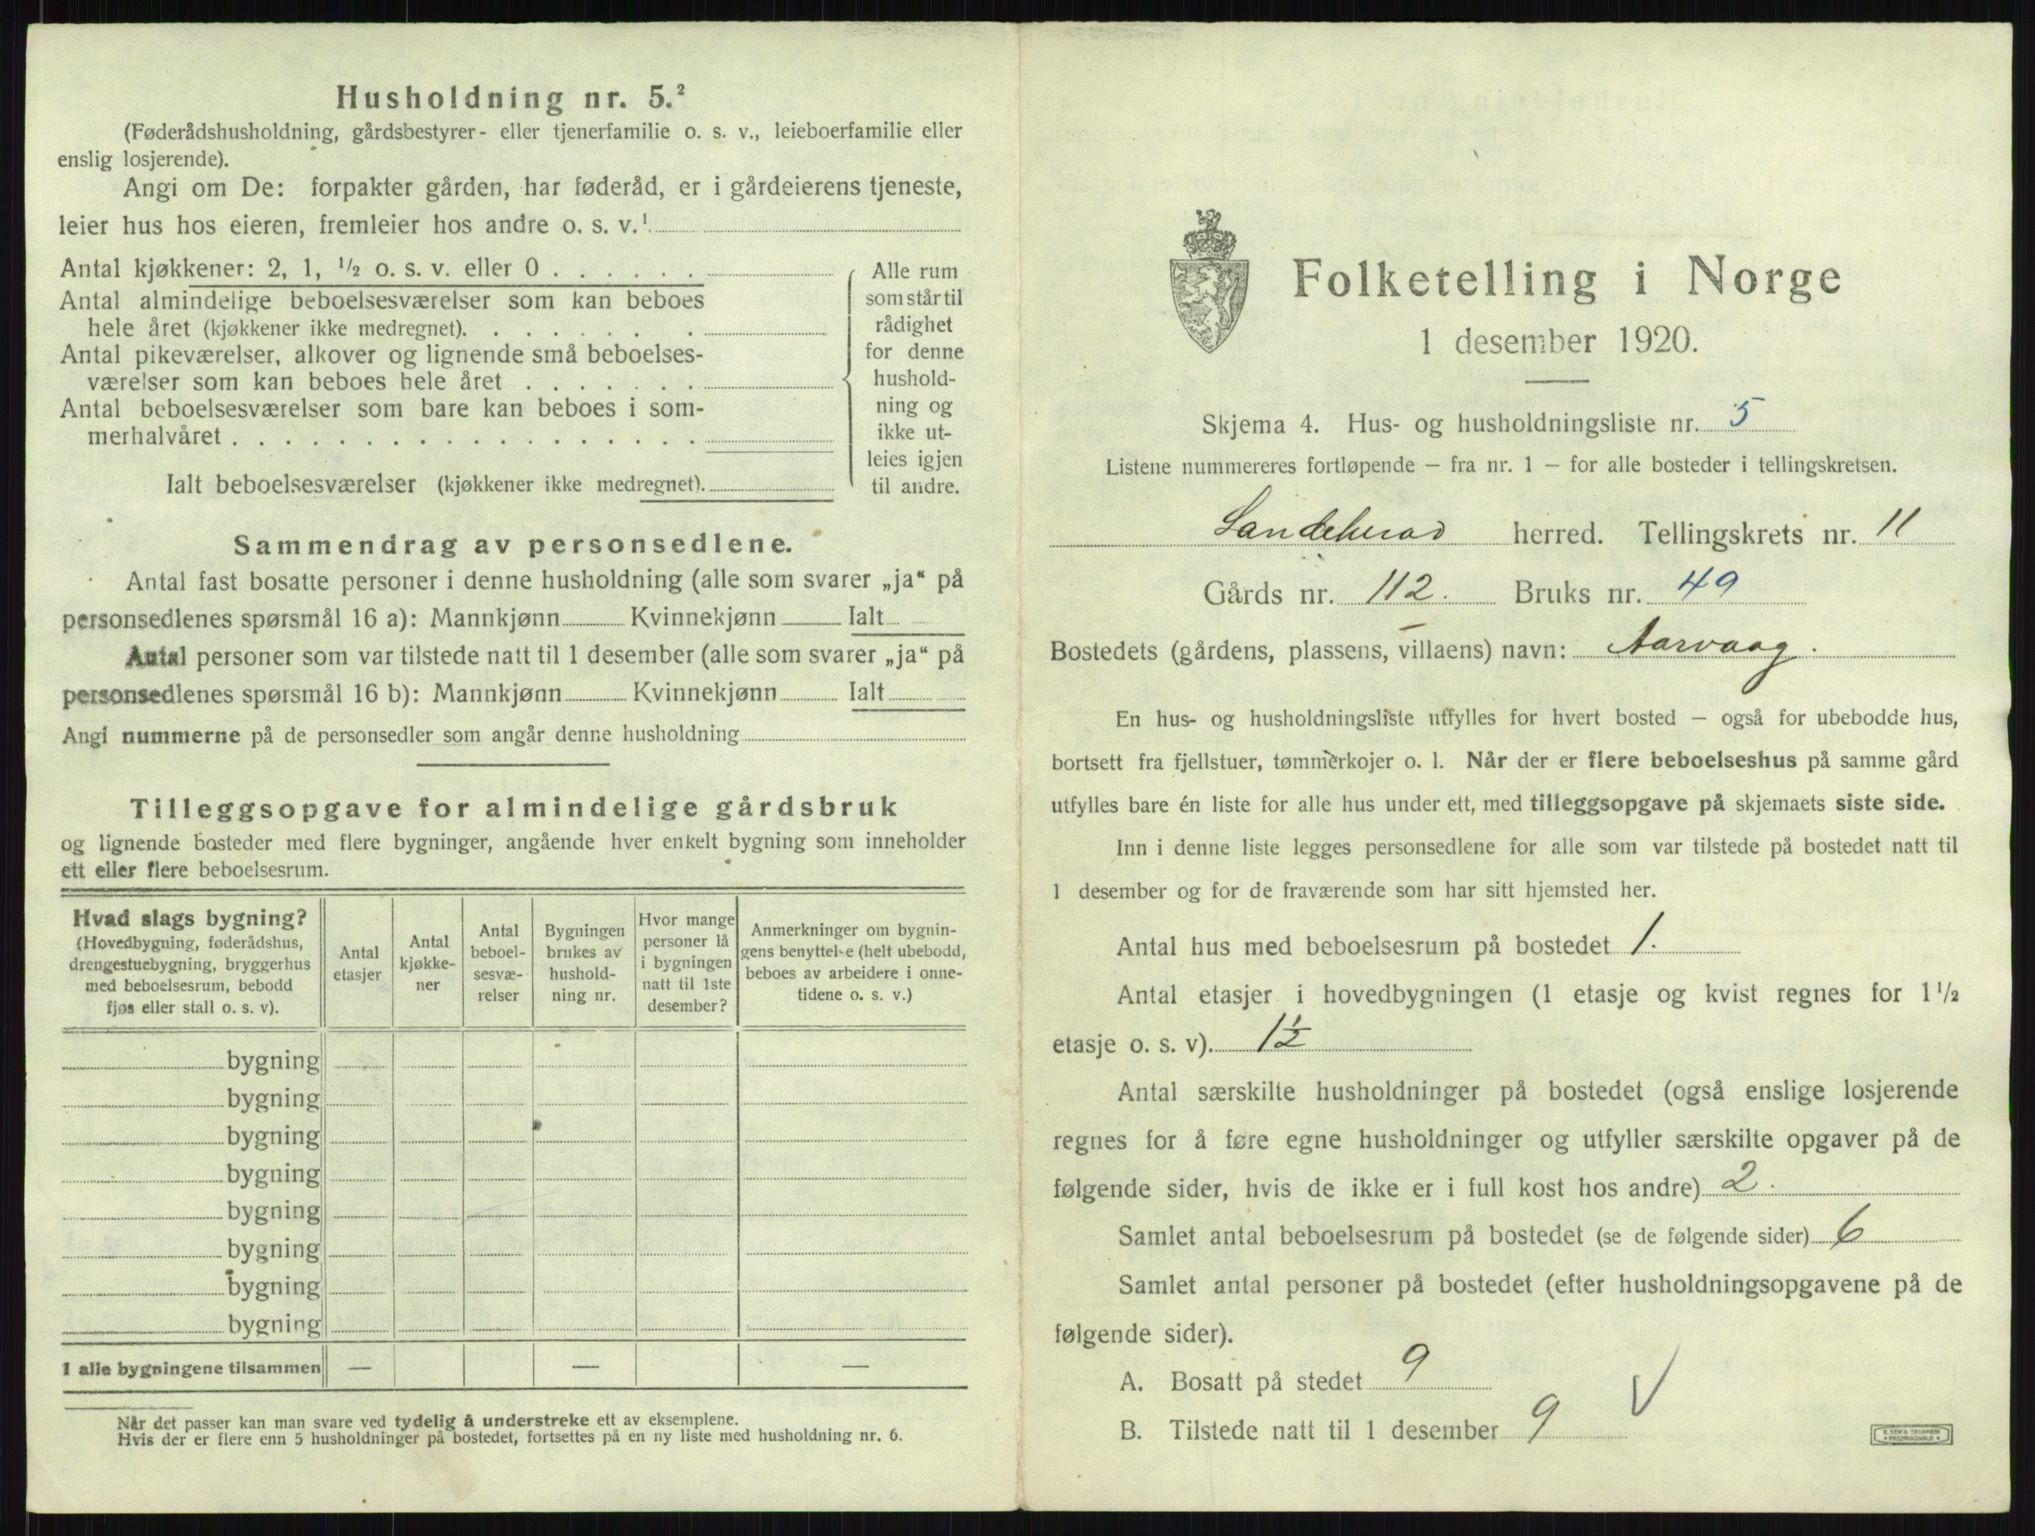 Husholdning nr. 5.²
(Føderådshusholdning, gårdsbestyrer- eller tjenerfamilie o. s. v., leieboerfamilie eller
enslig losjerende).
Angi om De: forpakter gården, har føderåd, er i gårdeierens tjeneste,
leier hus hos eieren, fremleier hos andre o. s. v.¹
Antal kjøkkener: 2, 1, ½ o. s. v. eller 0 . . . . . .
Antal almindelige beboelsesværelser som kan beboes
hele året (kjøkkener ikke medregnet). . . . . . .
Antal pikeværelser, alkover og lignende små beboelses-
værelser som kan beboes hele året . . . . . . .
Antal beboelsesværelser som bare kan beboes i som-
merhalvåret . . . . . . . . . . . . . . . . . .
Ialt beboelsesværelser (kjøkkener ikke medregnet).
Alle rum
som står til
rådighet
for denne
hushold-
ning og
ikke ut-
leies igjen
til andre.
Sammendrag av personsedlene.
Antal fast bosatte personer i denne husholdning (alle som svarer „ja“ på
personsedlenes spørsmål 16 a): Mannkjønn Kvinnekjønn Ialt
Antal personer som var tilstede natt til 1 desember (alle som svarer „ja“ på
personsedlenes spørsmål 16 b): Mannkjønn Kvinnekjønn Ialt
Angi nummerne på de personsedler som angår denne husholdning
Tilleggsopgave for almindelige gårdsbruk
og lignende bosteder med flere bygninger, angående hver enkelt bygning som inneholder
ett eller flere beboelsesrum.
Hvad slags bygning?
(Hovedbygning, føderådshus,
drengestuebygning, bryggerhus
med beboelsesrum, bebodd
fjøs eller stall o. s. v).
Antal
etasjer
Antal
kjøkke-
ner
Antal
beboel-
sesvæ-
relser
Bygningen
brukes av
hushold-
ning nr.
Hvor mange
personer lå
i bygningen
natt til 1ste
desember?
Anmerkninger om bygnin-
gens benyttelse (helt ubebodd,
beboes av arbeidere i onne-
tidene o. s. v.)
bygning
bygning
bygning
bygning
bygning
bygning
bygning
bygning
I alle bygningene tilsammen — — —
Når det passer kan man svare ved tydelig å understreke ett av eksemplene.
Hvis der er flere enn 5 husholdninger på bostedet, fortsettes på en ny liste med husholdning nr. 6.
Folketelling i Norge
1 desember 1920.
Skjema 4. Hus- og husholdningsliste nr. 5
Listene nummereres fortløpende — fra nr. 1 — for alle bosteder i tellingskretsen.
Sandeherad herred. Tellingskrets nr. 11
Gårds nr. 112. Bruks nr. 49
Bostedets (gårdens, plassens, villaens) navn: Aarvaag.
En hus- og husholdningsliste utfylles for hvert bosted — også for ubebodde hus,
bortsett fra fjellstuer, tømmerkojer o. l. Når der er flere beboelseshus på samme gård
utfylles bare én liste for alle hus under ett, med tilleggsopgave på skjemaets siste side.
Inn i denne liste legges personsedlene for alle som var tilstede på bostedet natt til
1 desember og for de fraværende som har sitt hjemsted her.
Antal hus med beboelsesrum på bostedet 1.
Antal etasjer i hovedbygningen (1 etasje og kvist regnes for 1½
etasje o. s. v). 1½
Antal særskilte husholdninger på bostedet (også enslige losjerende
regnes for å føre egne husholdninger og utfyller særskilte opgaver på de
følgende sider, hvis de ikke er i full kost hos andre) 2.
Samlet antal beboelsesrum på bostedet (se de følgende sider) 6
Samlet antal personer på bostedet (efter husholdningsopgavene på de
følgende sider).
A. Bosatt på stedet 9
B. Tilstede natt til 1 desember 9